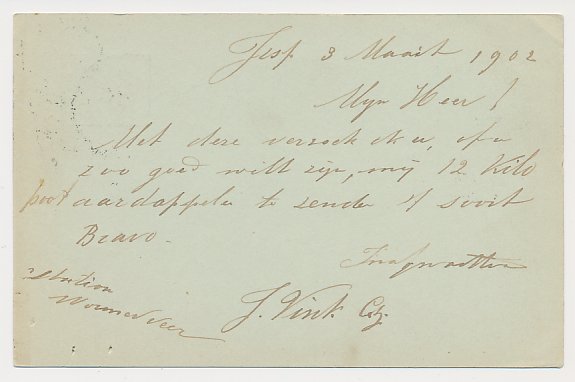 Jisp 3 Maart 1902
Mijn Heer!
Met deze verzoek ik u, of u
zoo goed wilt zijn, mij 12 Kilo
poot aardappelen te zenden v/ soort
Bravo.
Inafwachten
J. Vink Cz
station
Wormerveer